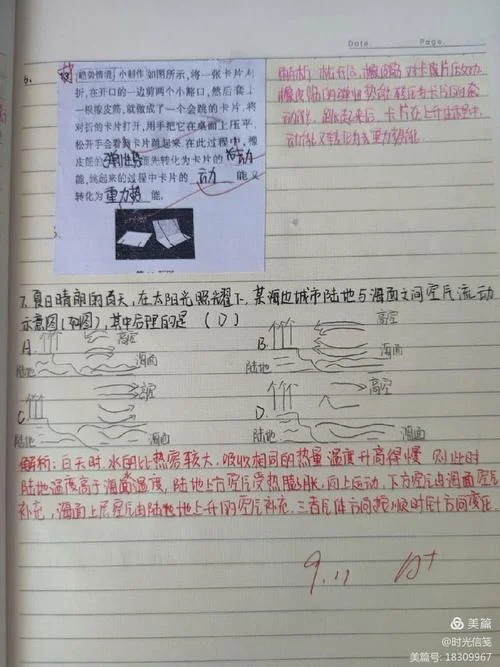 Date. Page.
趋势情境 小制作 如图所示,将一张卡片对
折,在开口的一边剪两个小豁口,然后套上
一根橡皮筋,就做成了一个会跳的卡片。将
对折的卡片打开,用手把它在桌面上压平,
松开手会看到卡片跳起来。在此过程中,橡
皮筋的弹性势能先转化为卡片的动
能,跳起来的过程中卡片的动能又
转化为重力势能。
解析:松开后,橡皮筋对卡片
橡皮筋的弹性势能转化为卡片的
动能,跳起来后,卡片在上升过程中,
动能又转化为重力势能。
7. 夏日晴朗的白天,在太阳光照耀下,某海边城市陆地与海面之间空气流动
示意图(列图),其中合理的是 (D)
A. 高空
陆地 海面
B. 高空
陆地 海面
C. 高空
陆地 海面
D. 高空
陆地 海面
解析:白天时,水的比热容较大,吸收相同的热量温度升高得慢 则此时
陆地温度高于海面温度,陆地上方空气受热膨胀,向上运动,下方空气由海面空气
补充,海面上层空气由陆地地上升的空气补充,三者气体方向按顺时针方向变化
9.11 A+
美篇
@时光信笺
美篇号: 18309967